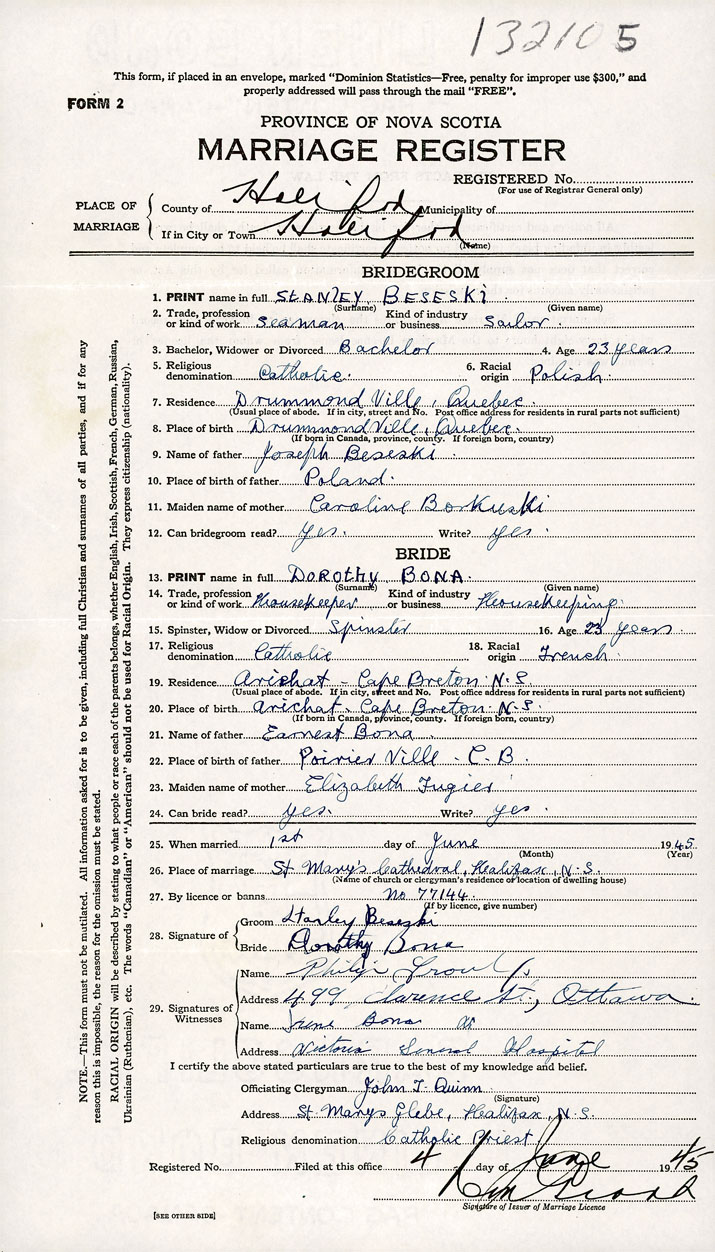 132105
This form, if placed in an envelope, marked “Dominion Statistics—Free, penalty for improper use $300,” and
properly addressed will pass through the mail “FREE”.
FORM 2
PROVINCE OF NOVA SCOTIA
MARRIAGE REGISTER
REGISTERED No.
(For use of Registrar General only)
PLACE OF MARRIAGE
County of Halifax Municipality of
If in City or Town Halifax
(Name)
BRIDEGROOM
1. PRINT name in full STANLEY BESESKi
(Surname) (Given name)
2. Trade, profession or kind of work Seaman Kind of industry or business Sailor.
3. Bachelor, Widower or Divorced Bachelor 4. Age 23 years
5. Religious denomination Catholic. 6. Racial origin Polish.
7. Residence Drummond Ville, Quebec.
(Usual place of abode. If in city, street and No. Post office address for residents in rural parts not sufficient)
8. Place of birth Drummond Ville, Quebec.
(If born in Canada, province, county. If foreign born, country)
9. Name of father Joseph Beseski.
10. Place of birth of father Poland.
11. Maiden name of mother Caroline Borkuski
12. Can bridegroom read? Yes. Write? yes.
BRIDE
13. PRINT name in full DOROthy BONA.
(Surname) (Given name)
14. Trade, profession or kind of work Housekeeper Kind of industry or business Housekeeping.
15. Spinster, Widow or Divorced Spinster 16. Age 23 years.
17. Religious denomination Catholic 18. Racial origin French.
19. Residence Arichat - Cape Breton. N.S.
(Usual place of abode. If in city, street and No. Post office address for residents in rural parts not sufficient)
20. Place of birth Arichat. Cape Breton. N.S.
(If born in Canada, province, county. If foreign born, country)
21. Name of father Earnest Bona.
22. Place of birth of father Poirier Ville - C.B.
23. Maiden name of mother Elizabeth Fugier
24. Can bride read? Yes. Write? yes.
25. When married 1st day of June 1945
(Month) (Year)
26. Place of marriage St Mary's Cathedral, Halifax, N.S.
(Name of church or clergyman's residence or location of dwelling house)
27. By licence or banns No 77144
(If by licence, give number)
28. Signature of
Groom Stanley Beseski
Bride Dorothy Bona
29. Signatures of Witnesses
Name Philip
Address 499 Clarence St., Ottawa.
Name Irene Bona
Address Victoria General Hospital
I certify the above stated particulars are true to the best of my knowledge and belief.
Officiating Clergyman John T. Quinn
(Signature)
Address St Marys Glebe, Halifax, N.S.
Religious denomination Catholic Priest
Registered No. Filed at this office 4 day of June 1945
Signature of Issuer of Marriage Licence
[SEE OTHER SIDE]
NOTE.—This form must not be mutilated. All information asked for is to be given, including full Christian and surnames of all parties, and if for any
reason this is impossible, the reason for the omission must be stated.
RACIAL ORIGIN will be described by stating to what people or race each of the parents belongs, whether English, Irish, Scottish, French, German, Russian,
Ukrainian (Ruthenian), etc. The words “Canadian” or “American” should not be used for Racial Origin. They express citizenship (nationality).